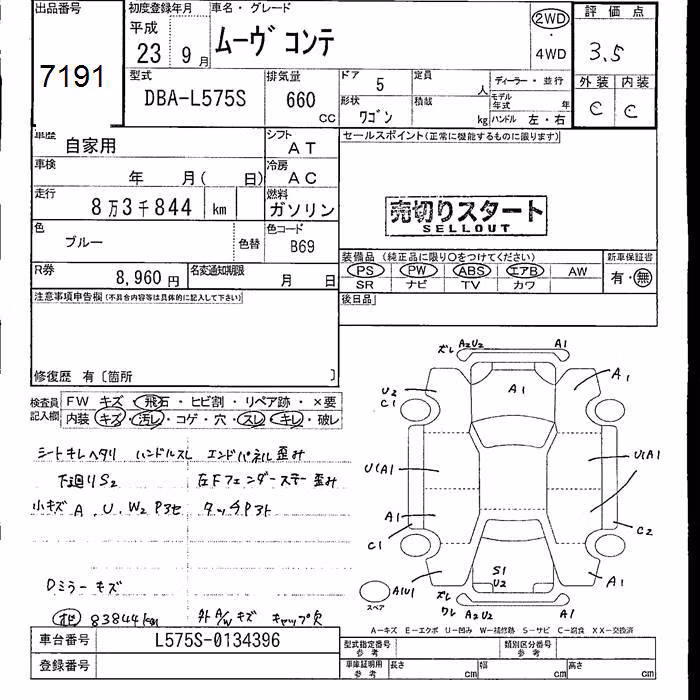 出品番号
7191
初度登録年月
平成
23 9月
車名・グレード
ムーヴ コンテ
2WD
・
4WD
評価点
3.5
外装 内装
C C
型式
DBA-L575S
排気量
660
CC
ドア 5
定員
人
形状
ワゴン
積載
kg
ディーラー・並行
モデル
年式
年
ハンドル 左・右
車歴
自家用
シフト
AT
車検
年 月( 日)
冷房
AC
走行
8万3千844 km
燃料
ガソリン
色
ブルー
色替
色コード
B69
R券
8,960 円
名変通知期限
月 日
セールスポイント(正常に機能するものに限ります)
売切りスタート
SELLOUT
装備品(純正品に限り○をつけてください)
新車保証書
PS PW ABS エアB AW
SR ナビ TV カワ
有・無
後日品
注意事項申告欄(不具合内容等は具体的に記入して下さい)
修復歴 有〔箇所 〕
検査員
記入欄
FW キズ・飛石・ヒビ割・リペア跡・×要
内装 キズ・汚レ・コゲ・穴・スレ・キレ・破レ
シートキレヘタリ ハンドルスレ エンドパネル歪み
下廻りS2 左Fフェンダーステー歪み
小キズ A、U、W2 P3セ タッチP3ト
Dミラーキズ
83844km 外A/Wキズ キャップ欠
車台番号
L575S-0134396
登録番号
ズレ A2U2 A1
A1
A1
U2
C1
U(A1
U(A1
A1
C1
C2
S1
U2
A1U1
A1
ズレ
ワレ A2U2 A1
スペア
A－キズ E－エクボ U－凹み W－補修跡 S－サビ C－腐食 XX－交換済
型式指定番号
参考
類別区分番号
参考
車庫証明用
参考
長さ
cm
幅
cm
高さ
cm